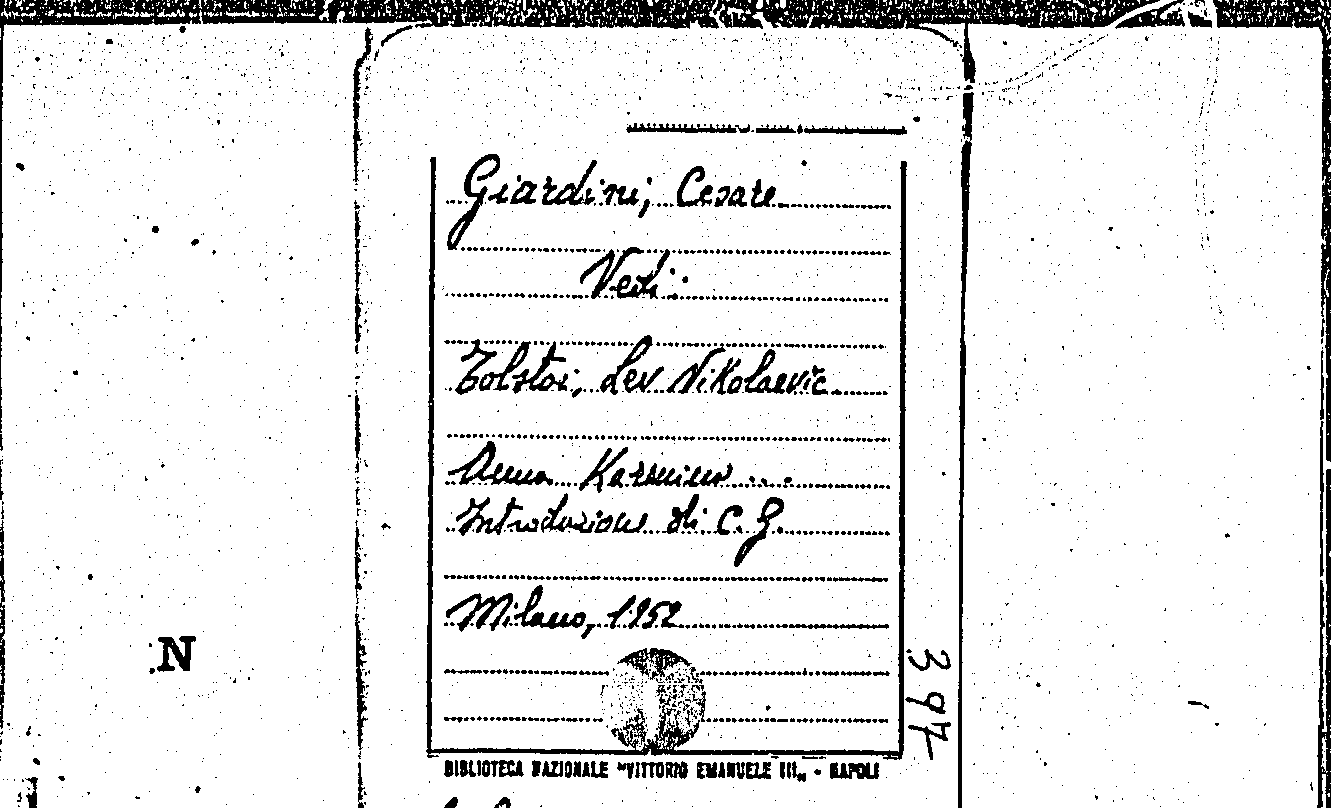 Giardini, Cesare
Vedi:
Tolstoi, Lev Nikolaevic
Anna Karenina ...
Introduzione di C. G.
Milano, 1952
N
397
BIBLIOTECA NAZIONALE "VITTORIO EMANUELE III„ - NAPOLI